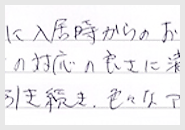 に入居時からのお
の対応の良さに満
引き続き、色々なア